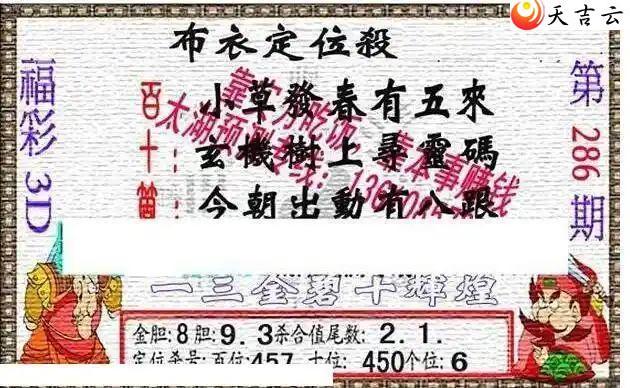 天吉云
布衣定位殺
福彩3D
第286期
百:小草發春有五來
十:玄機樹上尋靈碼
今朝出動有八跟
靠实力吃饭
靠本事赚钱
太湖预测
一三金碧十輝煌
金胆:8胆:9.3杀合值尾数:2.1.
定位杀号:百位:457 十位:450个位:6